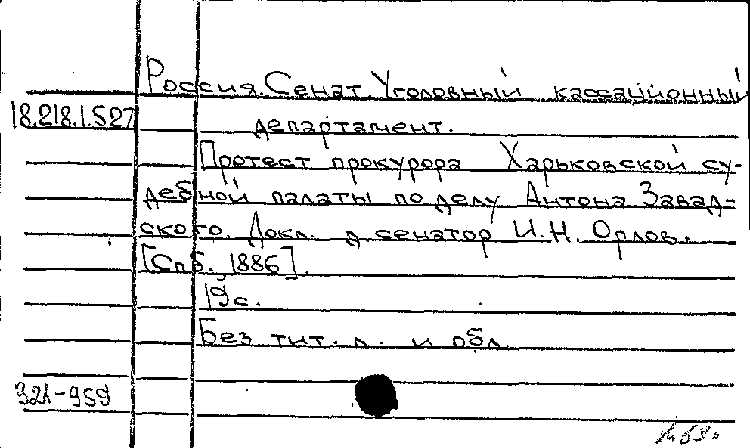 Россия. Сенат. Уголовный кассационный
18.218.1.527
департамент.
Протест прокурора Харьковской су-
дебной палаты по делу Антона Завад-
ского. Докл. д. сенатор И.Н. Орлов.
[Спб. 1886].
19 с.
Без тит. л. и обл.
321-959